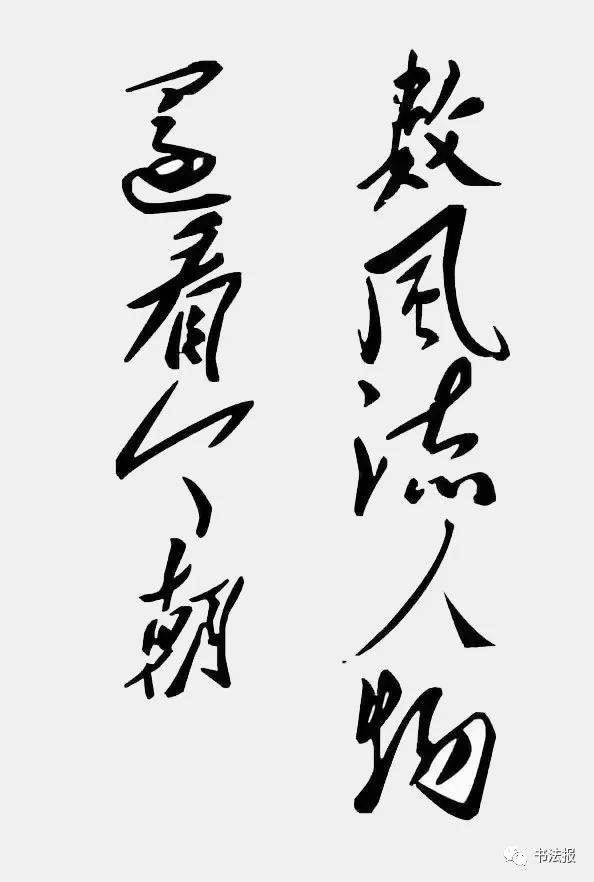 數風流人物
還看今朝
书法报